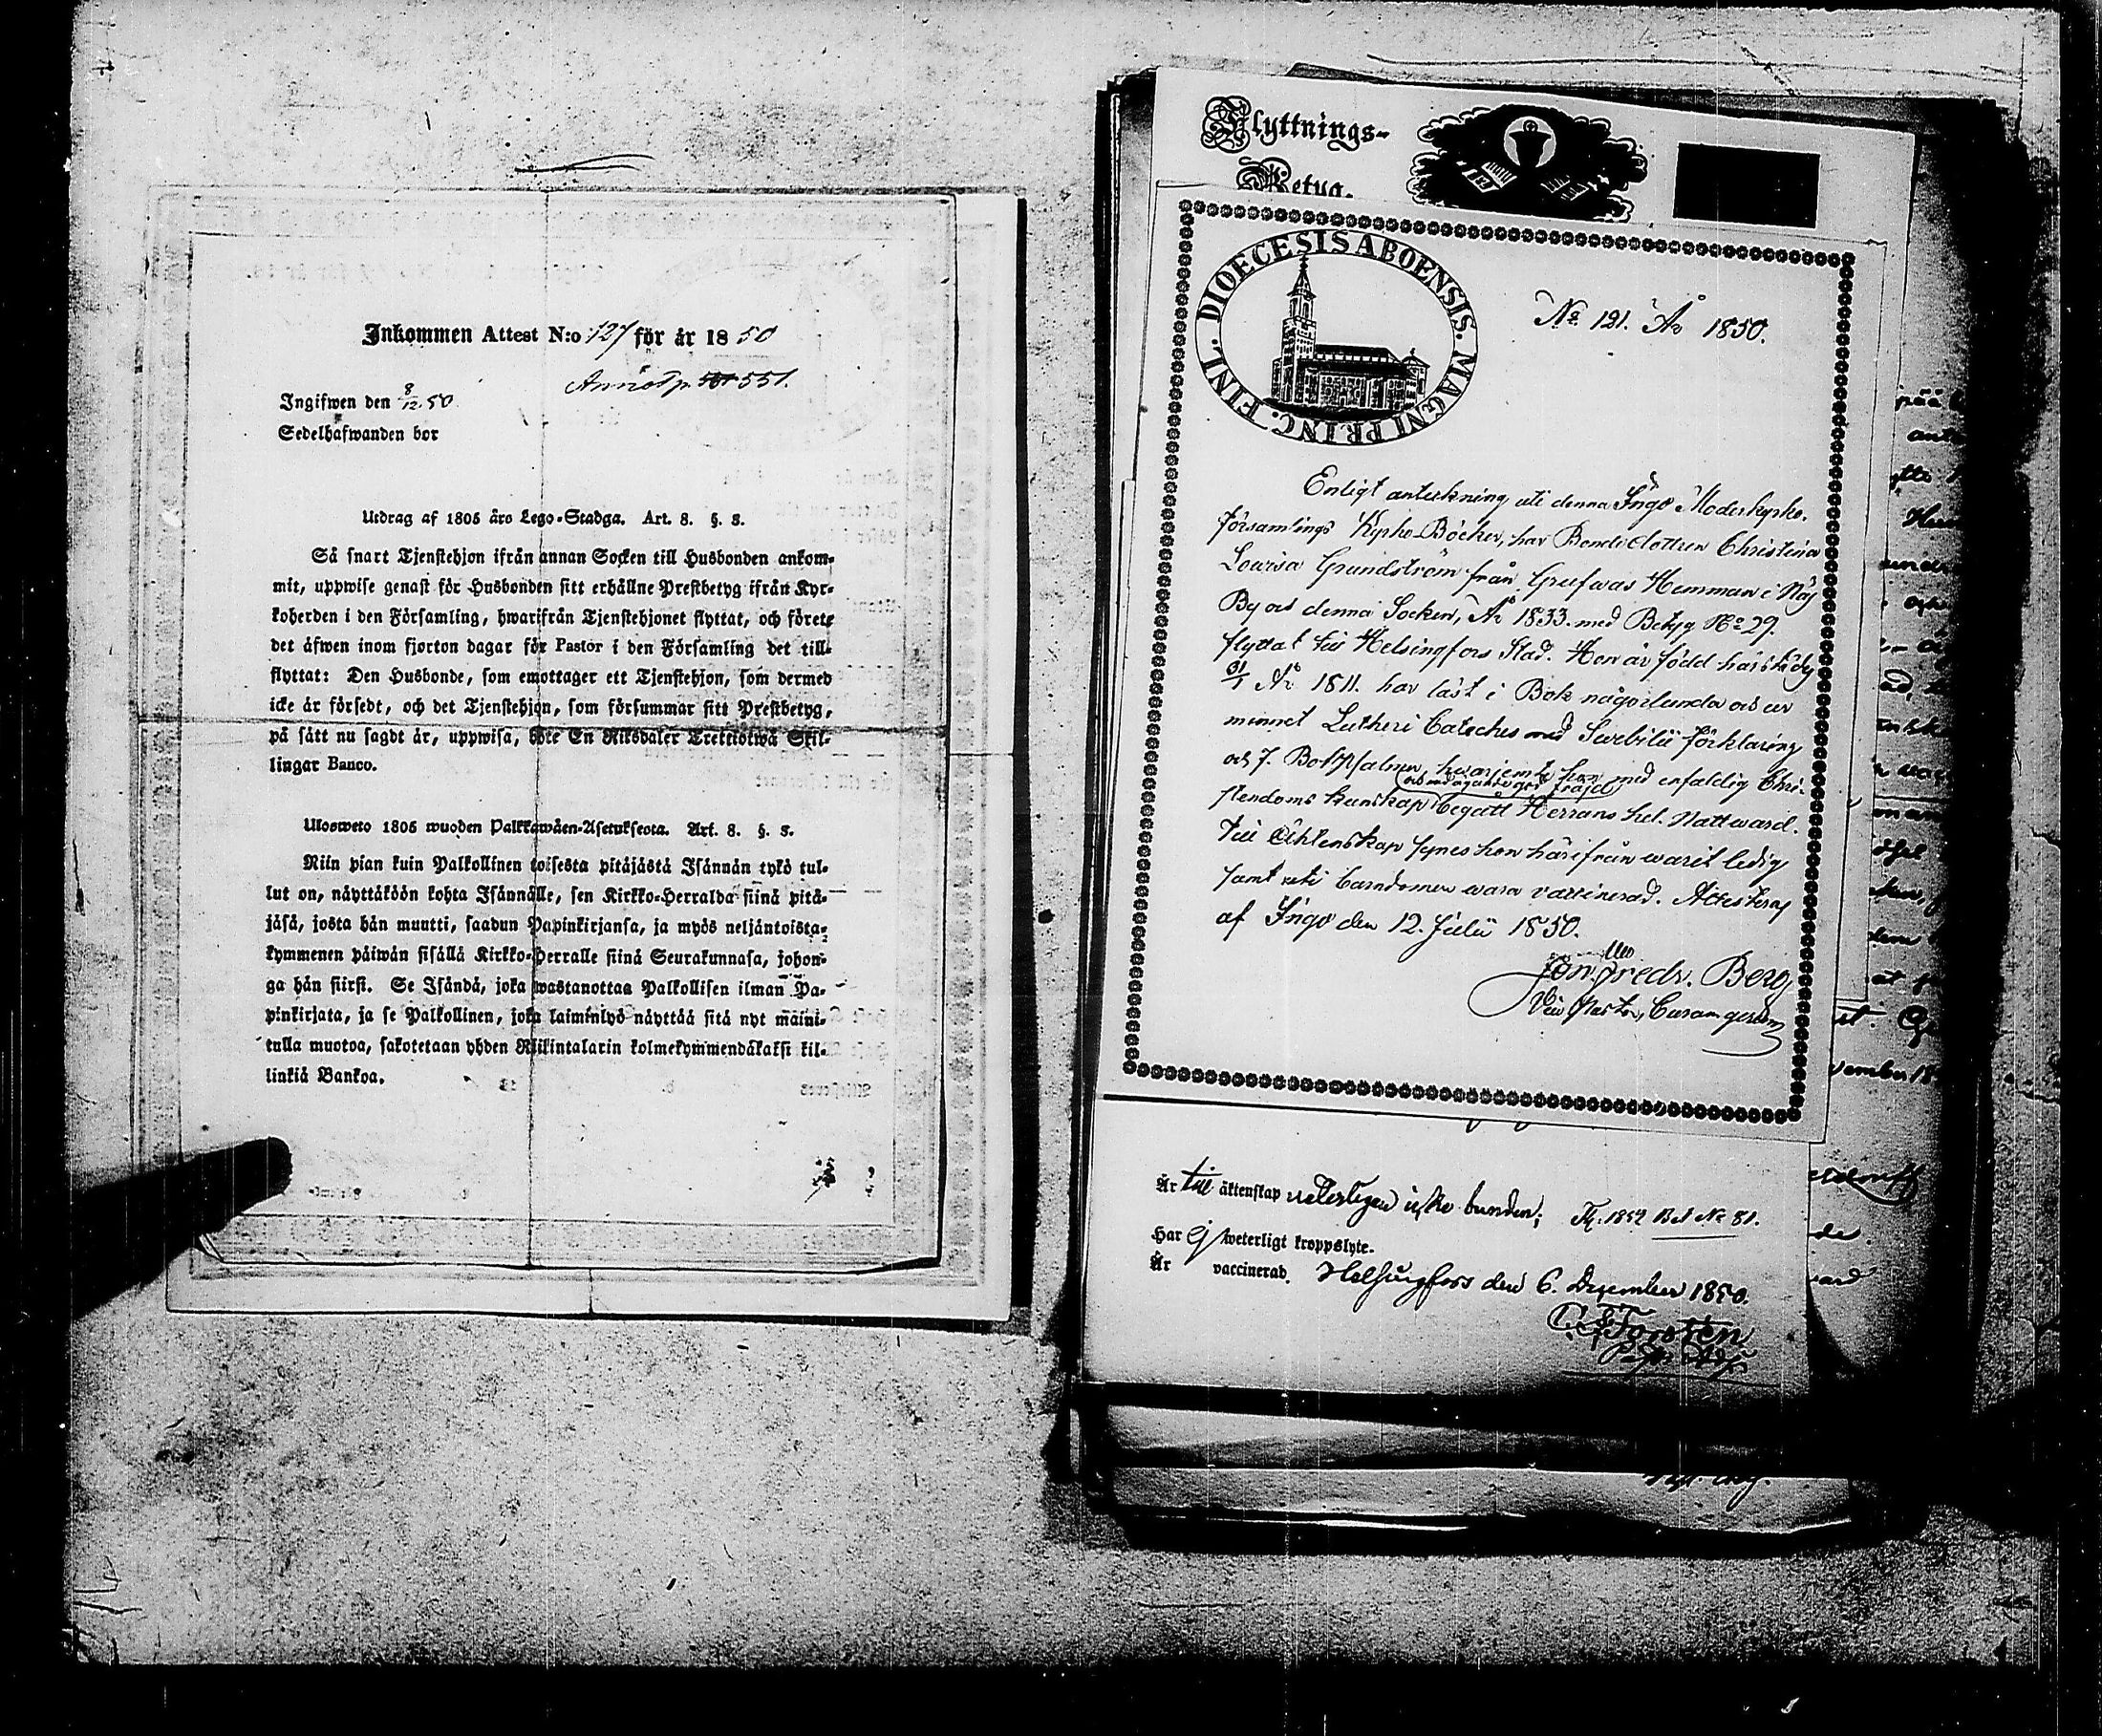 Inkommen Attest N:o 127 för år 1850
Annot p. 551.
Ingifwen den 8/12 50
Sedelhafwanden bor
Utdrag af 1805 års Lego-Stadga. Art. 8. §. 3.
Så snart Tjenstehjon ifrån annan Socken till Husbonden ankom-
mit, uppwise genast för Husbonden sitt erhållne Prestbetyg ifrån Kyr-
koherden i den Församling, hwarifrån Tjenstehjonet flyttat, och förete
det äfwen inom fjorton dagar för Pastor i den Församling det till-
flyttat: Den Husbonde, som emottager ett Tjenstehjon, som dermed
icke är försedt, och det Tjenstehjon, som försummar sitt Prestbetyg,
på sått nu sagdt är, uppwisa, böte En Riksdaler Trettiotwå Skil-
lingar Banco.
Uloswetto 1805 wuoden Palkkawäen-Asetuksesta. Art. 8. §. 3.
Niin pian kuin Palkollinen toisesta pitäjästä Isännän tykö tul-
lut on, näyttäköön kohta Isännälle, sen Kirkko-Herralda siinä pitä-
jäsä, josta hän muutti, saadun Papinkirjansa, ja myös neljäntoista-
kymmenen päiwän sisällä Kirkko-Herralle siinä Seurakunnasa, johon-
ga hän siirsi. Se Isändä, joka wastanottaa Palkollisen ilman Pa-
pinkirjata, ja se Palkollinen, joka laiminlyö näyttää sitä nyt maini-
tulla muotoa, sakotetaan yhden Riikintalarin kolmekymmendäkaksi kil-
linkiä Bankoa.
Flyttnings-
Betyg.
DIOECESIS ABOENSIS. MAGNI PRINC. FINL.
No 121. År 1850.
Enligt anteckning uti denna Ingo Moderkyrko-
församlings Kyrko-Böcker, har Bondedottren Christina
Lowisa Grundström från Grefwas Hemman i Näs
By och denna Socken, År 1833. med Betyg No 29.
flyttat till Helsingfors Stad. Hon är född härstädes
År 1811. har läst i Bok någorlunda och ur
minnet Lutheri Cateches med Swebilii förklaring
och 7. Bot Psalmer, hwarjemte hon med enfaldig Chri-
stendoms kunskap begått Herrans hel. Nattward.
Till Ächtenskap synes hon härifrån warit ledig
samt uti barndomen wara vaccinerad. Attesteras
af Ingo den 12. Julii 1850.
Fredr. Berg
Vice Pastor,
Är till äktenskap weterligen icke bunden; Fl. 1857 Bet No 81.
Har ej weterligt kroppslyte.
Är vaccinerad. Helsingfors den 6. December 1850.